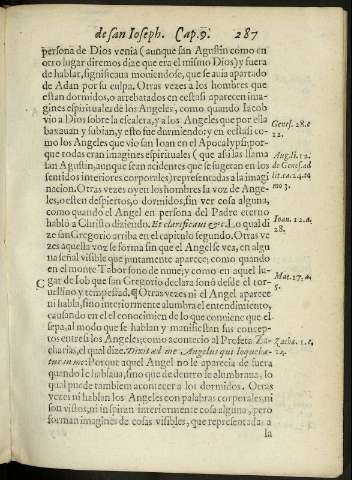 de san Ioseph. Cap.9. 287
persona de Dios venia (aunque san Agustin como en
otro lugar diremos dize que era el mismo Dios) y fuera
de hablar, significaua mouiendose, que se auia apartado
de Adan por su culpa. Otras vezes a los hombres que
estan dormidos, o arrebatados en ecstasi aparecen ima-
gines espirituales de los Angeles, como quando Iacob
vio a Dios sobre la escalera, y a los Angeles que por ella
baxauan y subian, y esto fue durmiendo: y en ecstasi co-
mo los Angeles que vio san Ioan en el Apocalypsi; por-
que todas eran imagines espirituales (que assi las llama
san Agustin, aunque sean acidentes que se sugetan en los
sentidos interiores corporales) representadas a la imagi-
nacion. Otras vezes oyen los hombres la voz de Ange-
les, o esten despiertos, o dormidos, sin ver cosa alguna,
como quando el Angel en persona del Padre eterno
habló a Christo diziendo. Et clarificaui &c. Lo qual di
ze san Gregorio arriba en el capitulo segundo. Otras ve
zes aquella voz se forma sin que el Angel se vea, en algu
na señal visible que juntamente aparece; como quando
en el monte Tabor sono de nuue; y como en aquel lu-
gar de Iob que san Gregorio declara sonó desde el tor-
uellino y tempestad. ¶ Otras vezes ni el Angel aparece
ni habla, sino interiormente alumbra el entendimiento,
causando en el el conocimiento de lo que conuiene que el
sepa, al modo que se hablan y manifiestan sus concep-
tos entre si los Angeles; como acontecio al Profeta Za-
charias, el qual dize. Dixit ad me Angelus qui loqueba-
tur in me: Porque aquel Angel no le aparecia de fuera
quando le hablaua, sino que de dentro se alumbraua, lo
qual puede tambien acontecer a los dormidos. Otras
vezes ni hablan los Angeles con palabras corporales, ni
son vistos, ni inspiran interiormente cosa alguna, pero
forman imagines de cosas visibles, que representada a
la
Genes. 28.c
22.
Aug. li. 12.
de Genes. ad
lit. ca. 24.
Ioan. 12.d.
28.
Mat. 17.a.
5.
C
Zacha. 1.c.
14.